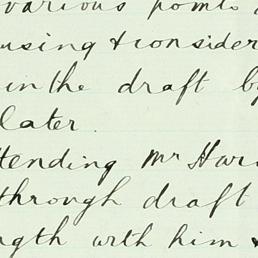 various points
using & consider
in the draft by
later.
ttending Mr Har
through draft
ngth with him &